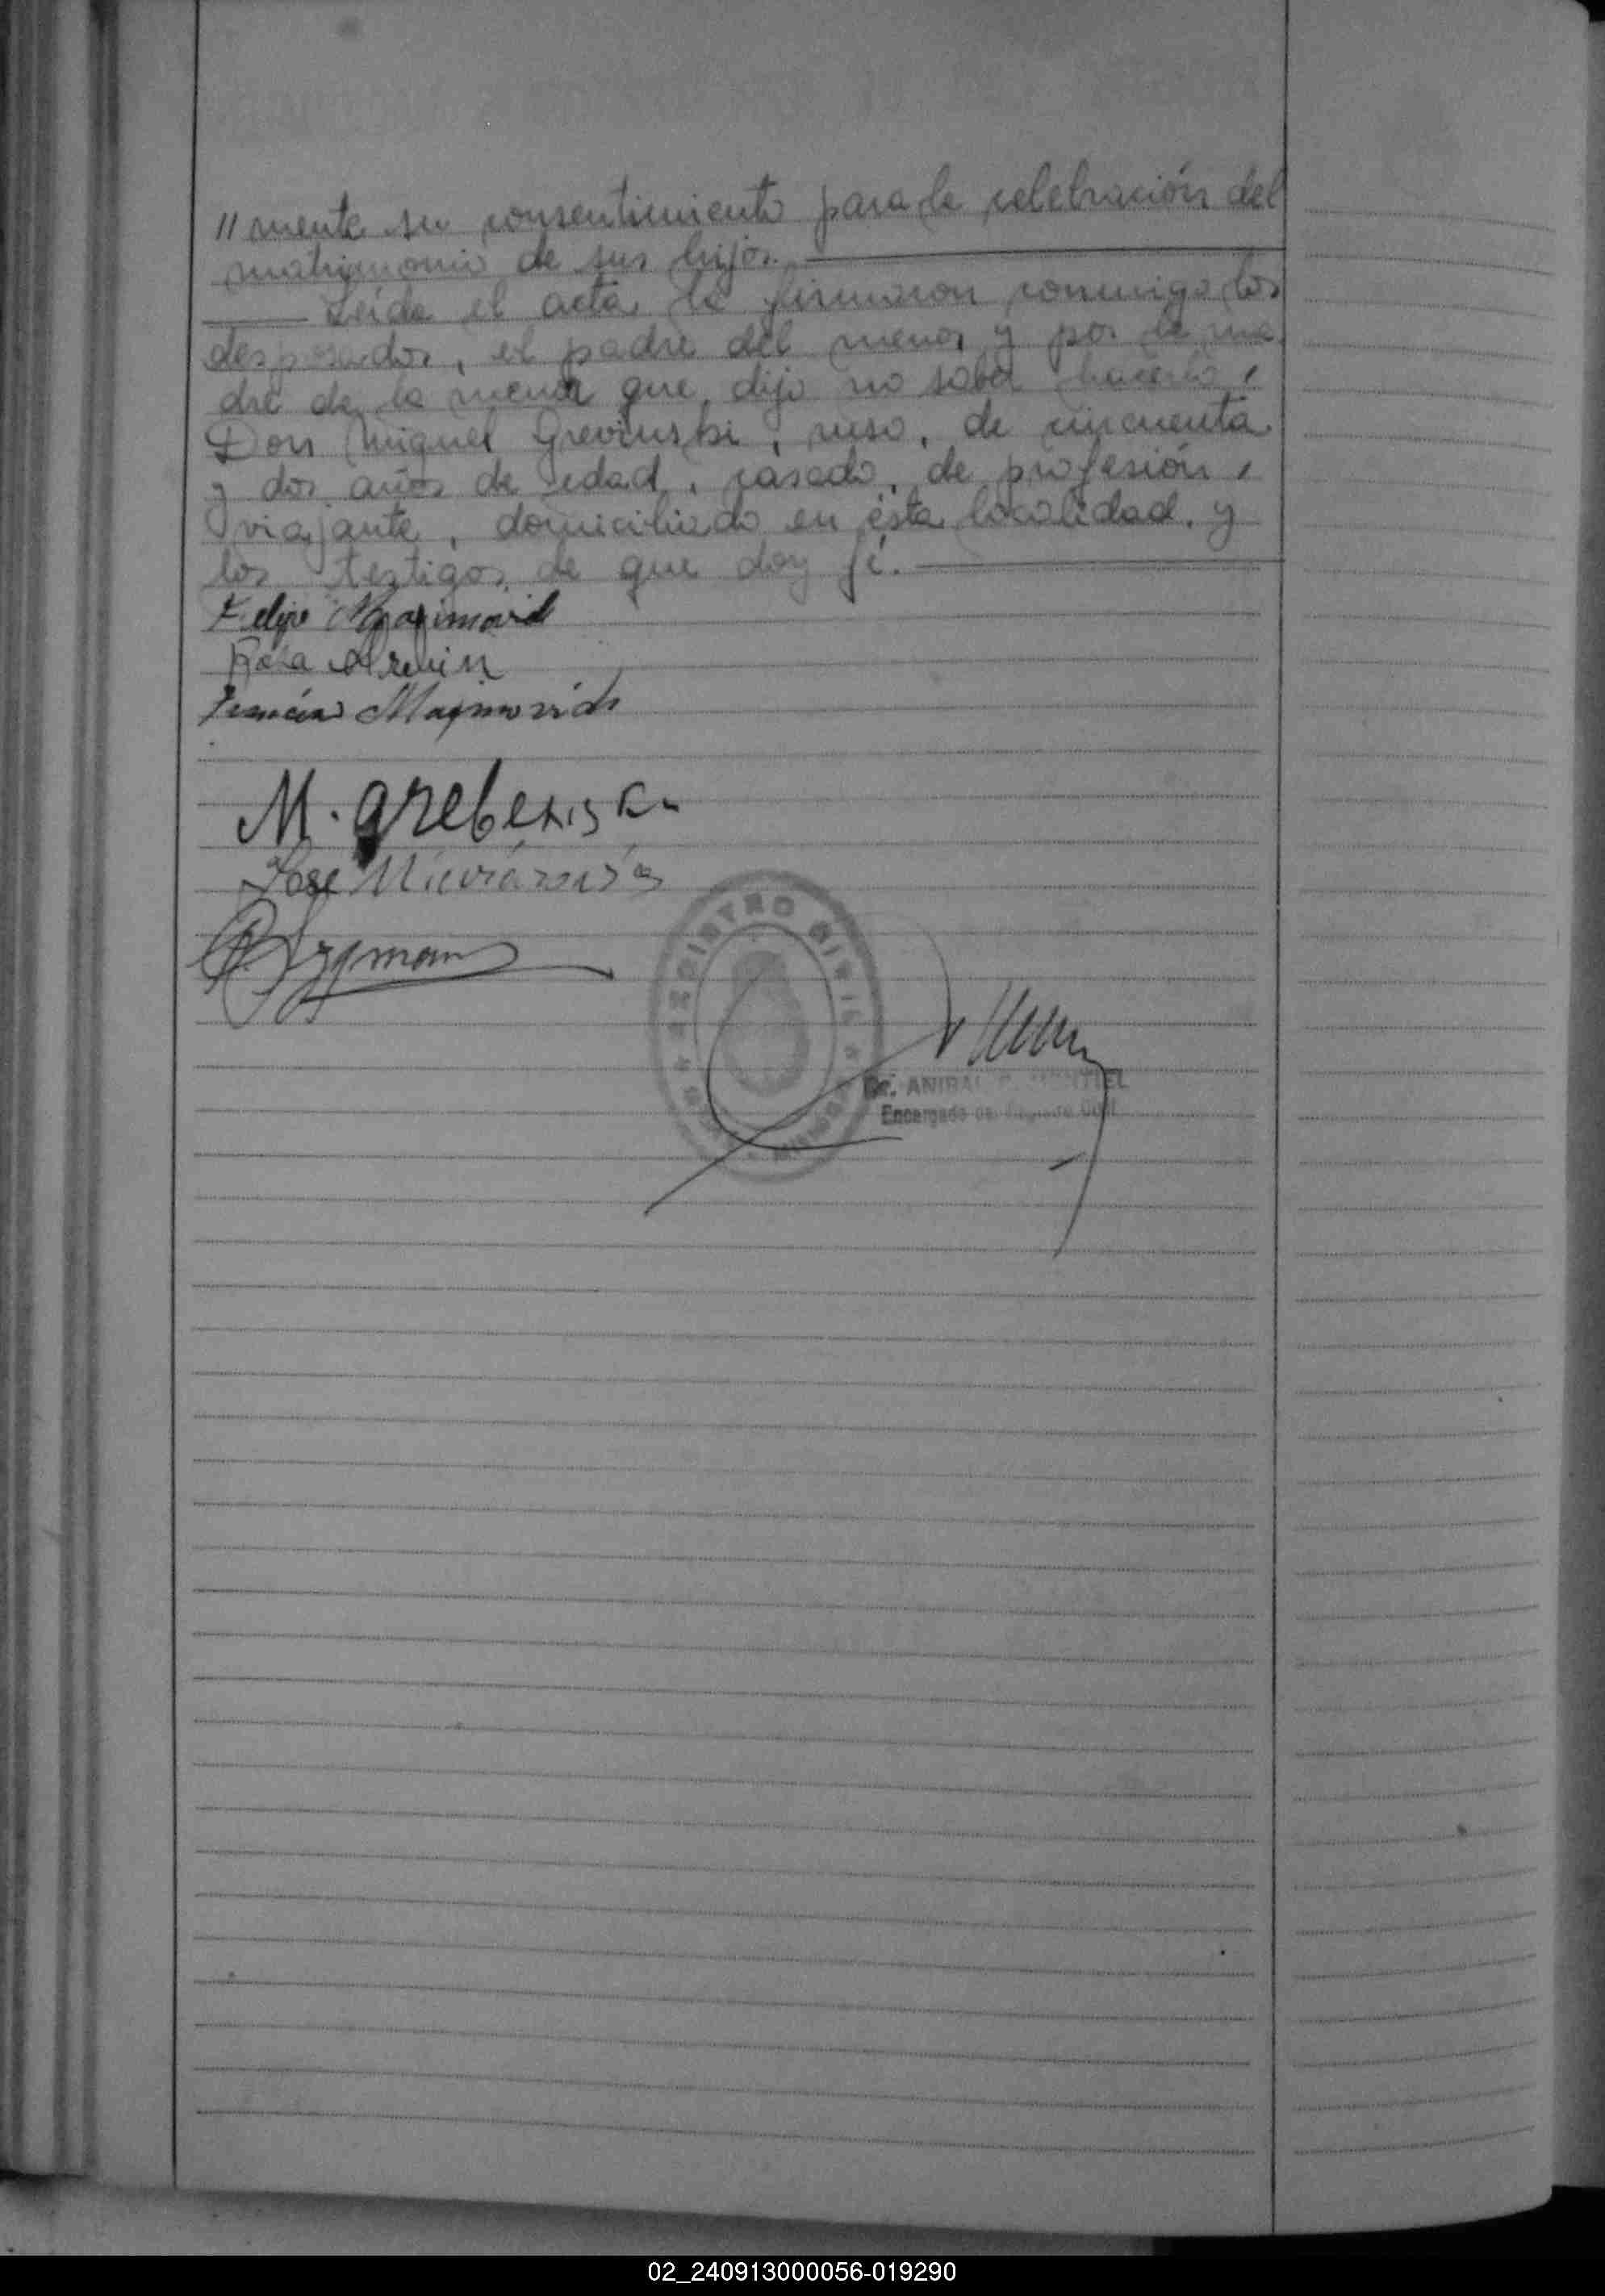 "mente su consentimiento para la celebración del
matrimonio de sus hijos.
Leída el acta la firmaron conmigo los
desposados, el padre del menor y por la ma
dre de la menor que dijo no saber hacerlo,
Don Miguel Grevinski, ruso, de cincuenta
y dos años de edad, casado, de profesión,
viajante, domiciliado en ésta localidad, y
los testigos de que doy fé.
Felipe
Rosa
Maximovich
M.
Jose
REGISTRO CIVIL
Dr. ANIBAL
Encargado del Registro Civil
02_240913000056-019290